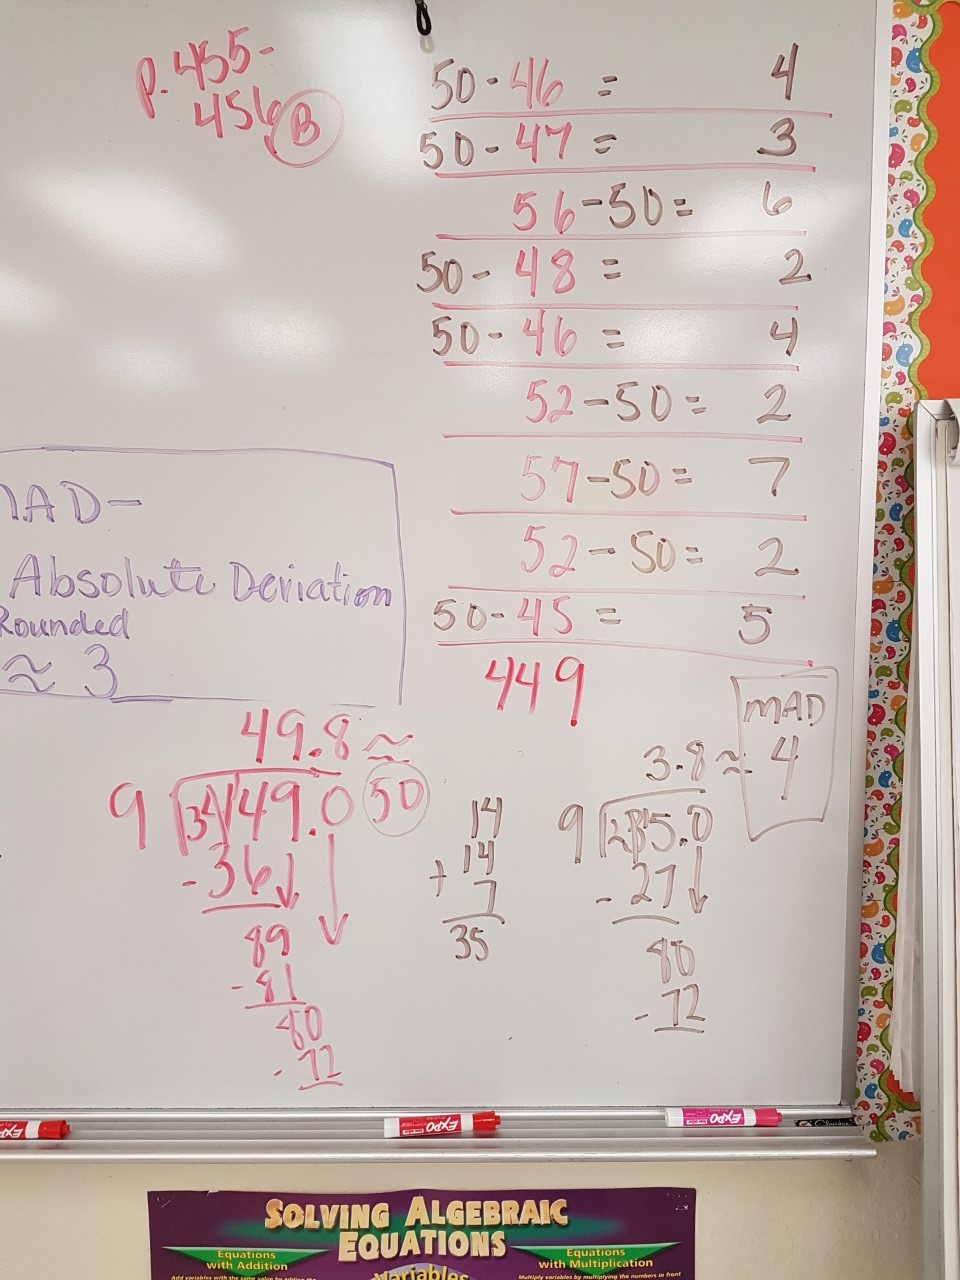 p. 455-
456 B
50 - 46 = 4
50 - 47 = 3
56 - 50 = 6
50 - 48 = 2
50 - 46 = 4
52 - 50 = 2
57 - 50 = 7
52 - 50 = 2
50 - 45 = 5
449
MAD -
Absolute Deviation
Rounded
≈ 3
49.8 ≈
50
9 449.0
- 36
89
- 81
80
- 72
14
14
+ 7
35
3.8 ≈
MAD
4
9 35.0
- 27
80
- 72
EXPO
EXPO
EXPO
SOLVING ALGEBRAIC
EQUATIONS
Equations
with Addition
Equations
with Multiplication
Variables
Multiply variables by multiplying the numbers in front